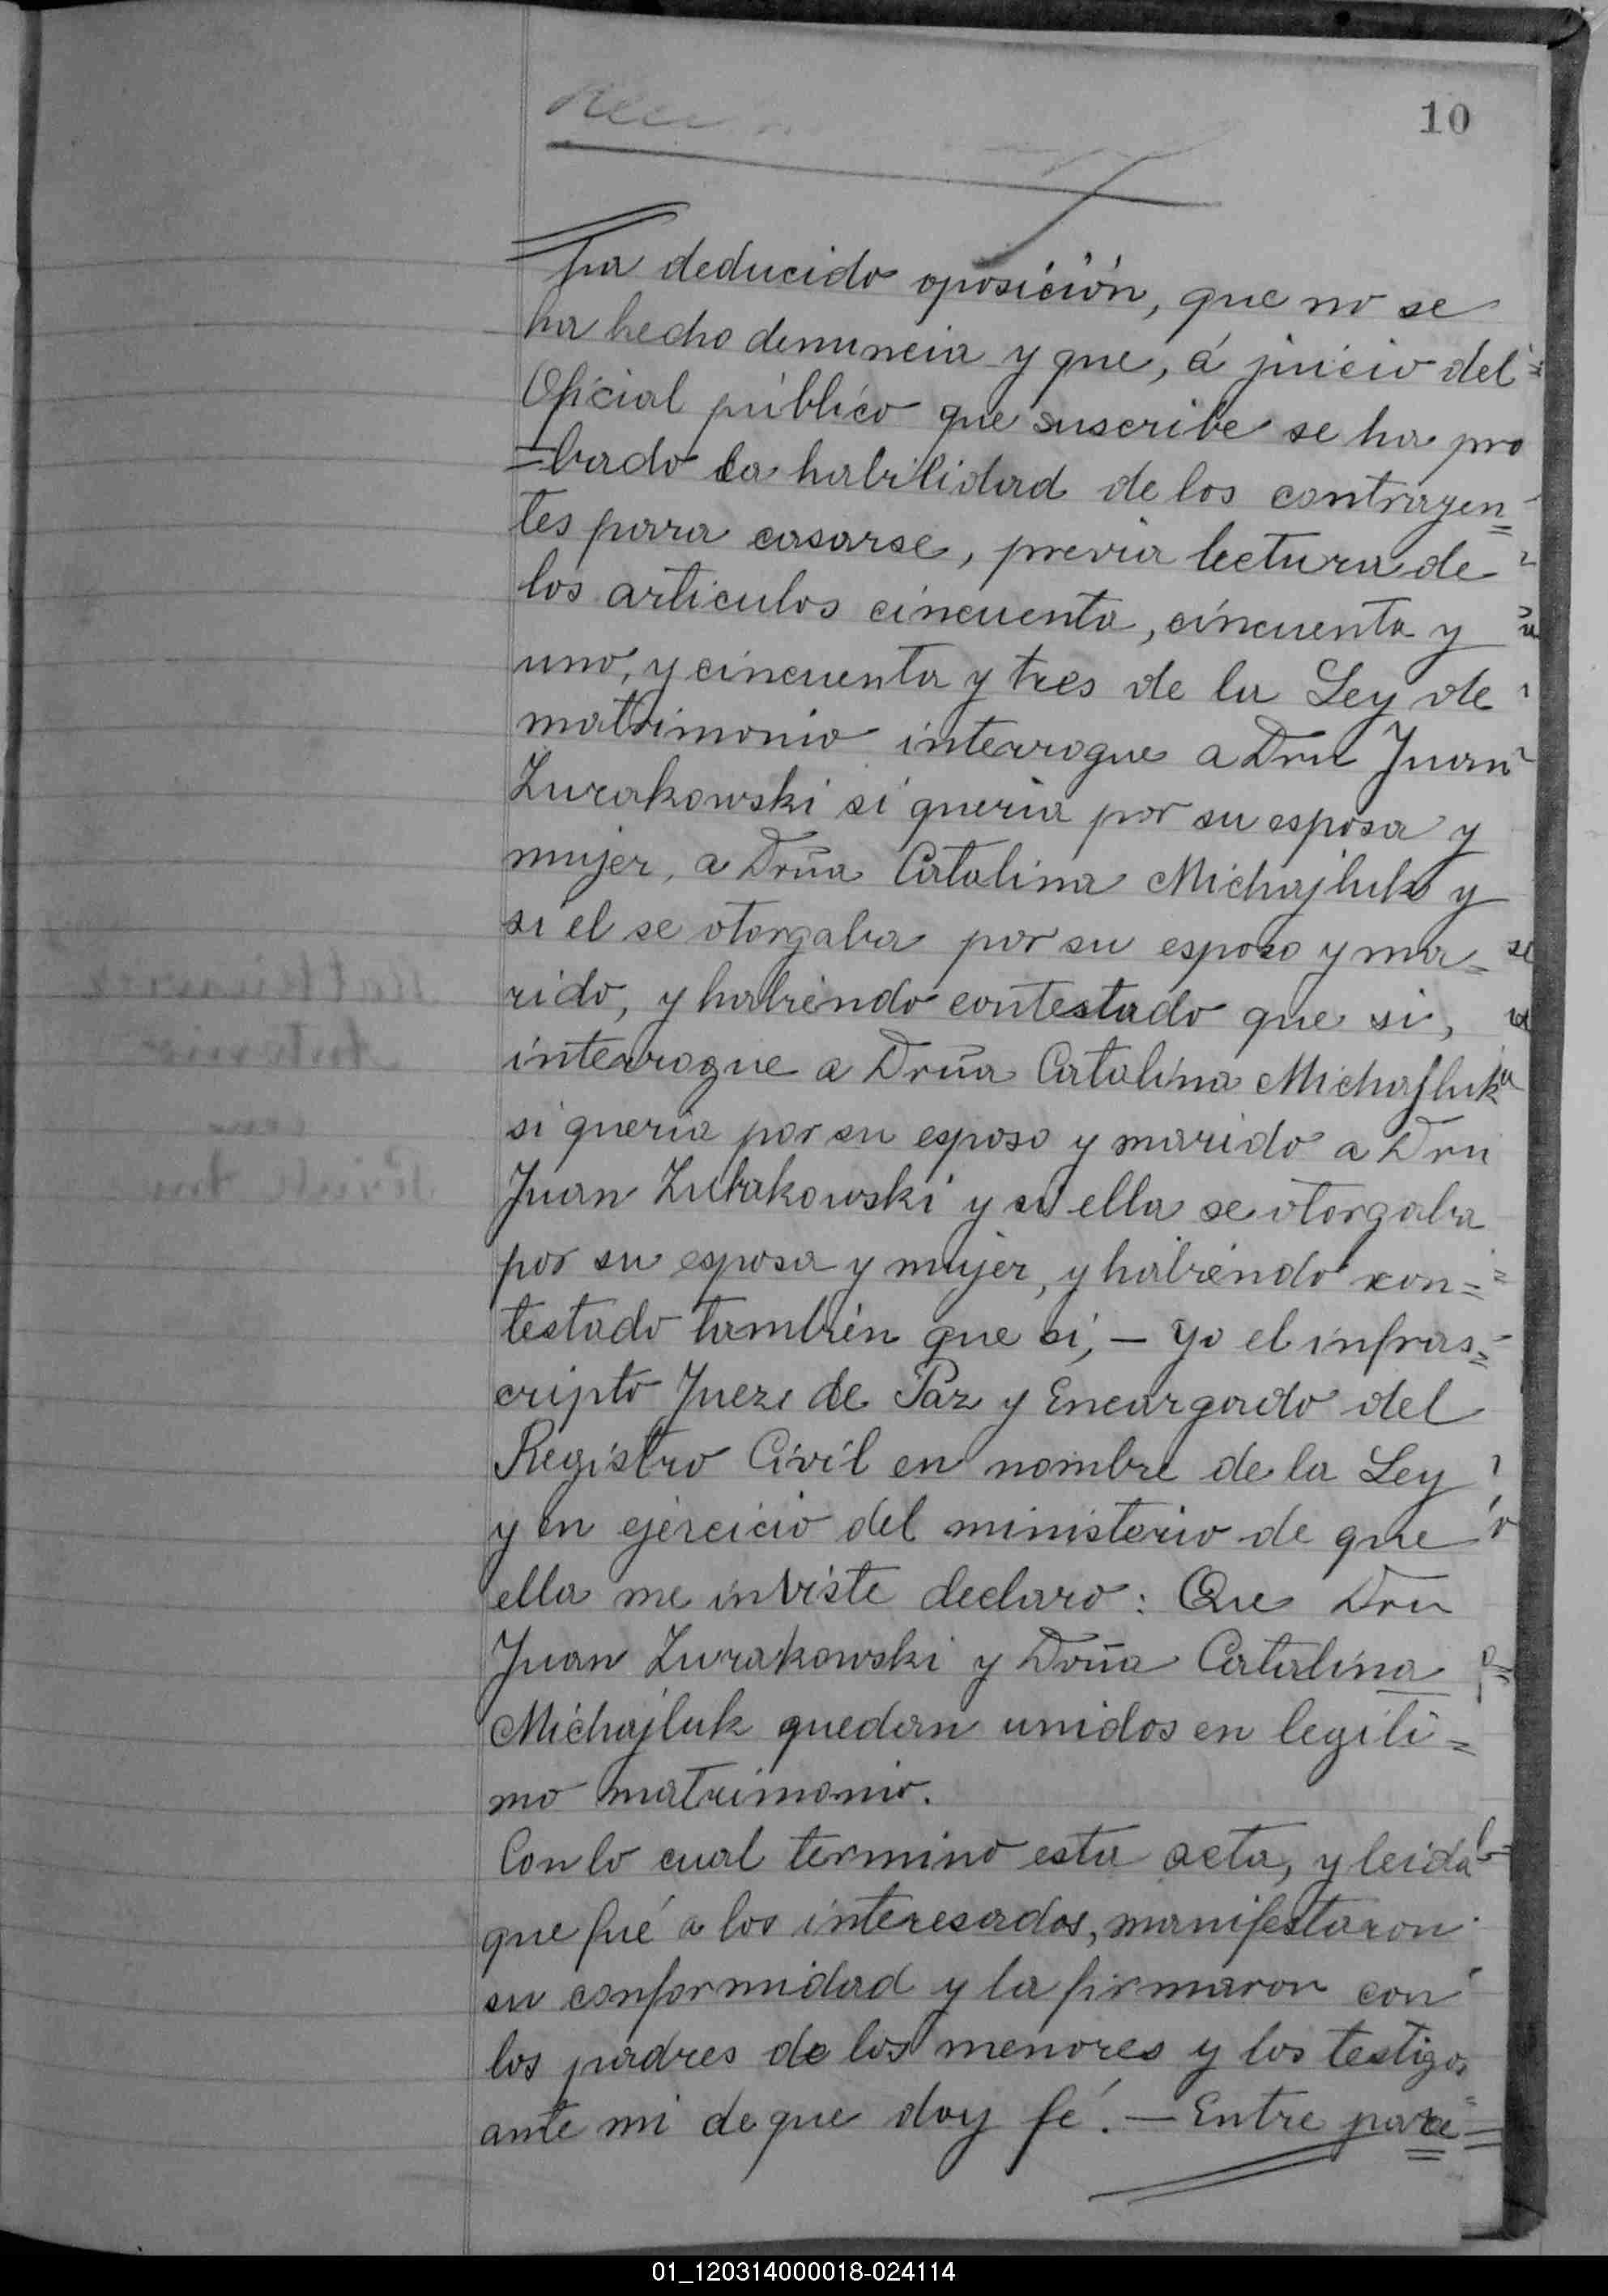 10
ha deducido oposición, que no se
ha hecho denuncia y que, á juicio del
Oficial público que suscribe se ha pro
=bado la habilidad de los contrayen=
tes para casarse, previa lectura de
los articulos cincuenta, cincuenta y
uno, y cincuenta y tres de la Ley de
matrimonio interrogue a Don Juan
Zurakowski si queria por su esposa y
mujer, a Doña Catalina Michajluk y
si el se otorgaba por su esposo y ma=
rido, y habiendo contestado que si,
interrogue a Doña Catalina Michajluk
si queria por su esposo y marido a Don
Juan Zurakowski y si ella se otorgaba
por su esposa y mujer, y habiendo con=
testado también que si, — Yo el infras=
cripto Juez de Paz y Encargado del
Registro Civil en nombre de la Ley
y en ejercicio del ministerio de que
ella me inviste declaro: Que Don
Juan Zurakowski y Doña Catalina
Michajluk quedan unidos en legiti=
mo matrimonio.
Con lo cual termino esta acta, y leida
que fué a los interesados, manifestaron
su conformidad y la firmaron con
los padres de los menores y los testigos
ante mi de que doy fé. — Entre pare=
01_120314000018-024114